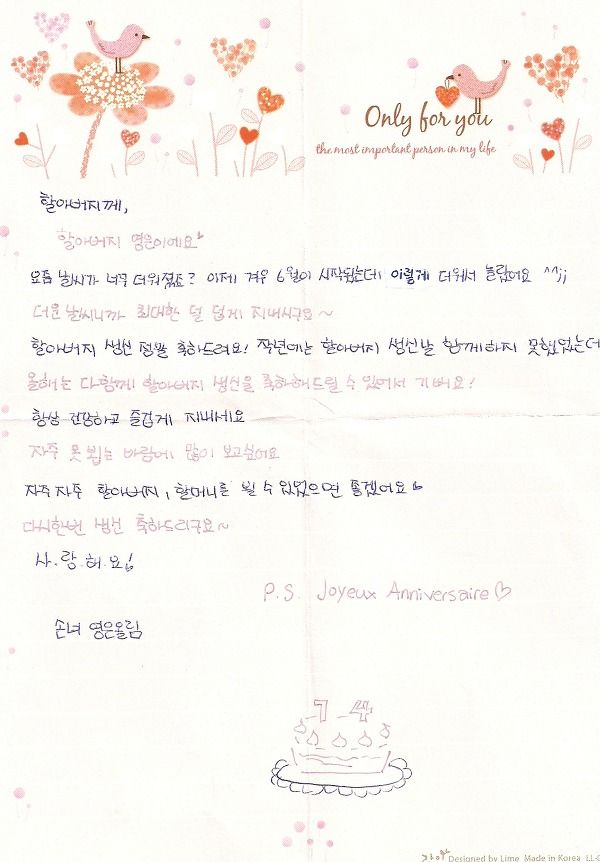 Only for you
the most important person in my life
할아버지께,
할아버지 영은이에요
요즘 날씨가 너무 더워졌죠? 이제 겨우 6월이 시작됬는데 이렇게 더워서 놀랐어요 ^^;;
더운 날씨니까 최대한 덜 덥게 지내시구요~
할아버지 생신 정말 축하드려요! 작년에는 할아버지 생신날 함께하지 못했었는데
올해는 다함께 할아버지 생신을 축하해드릴 수 있어서 기뻐요!
항상 건강하고 즐겁게 지내세요
자주 못 뵙는 바람에 많이 보고싶어요
자주자주 할아버지, 할머니를 뵐 수 있었으면 좋겠어요
다시한번 생신 축하드리구요~
사.랑.해.요!
P.S. Joyeux Anniversaire♡
손녀 영은올림
74
Designed by Lime Made in Korea